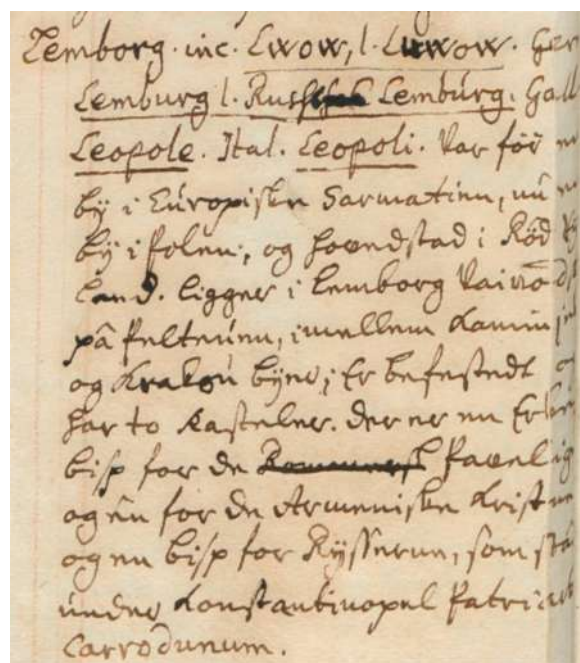 Lemborg. inc. Lwow, l. Luwow. Ger
Lemburg l. Lemburg. Gall
Leopole. Ital. Leopoli. Var för
by i Europiske Sarmatien, nu
by i Polen, og hovedstad i Röd
land. ligger i Lemborg
på Pelteuen, imellem Kamin
og Krakou byer; Er befestedt
har to Kasteler. der er en Erke
bisp for de Pavelig
og en for de Armeniske Kristne
og en bisp for Rysserne, som
under Konstantinopel Patriark
Carrodunum.